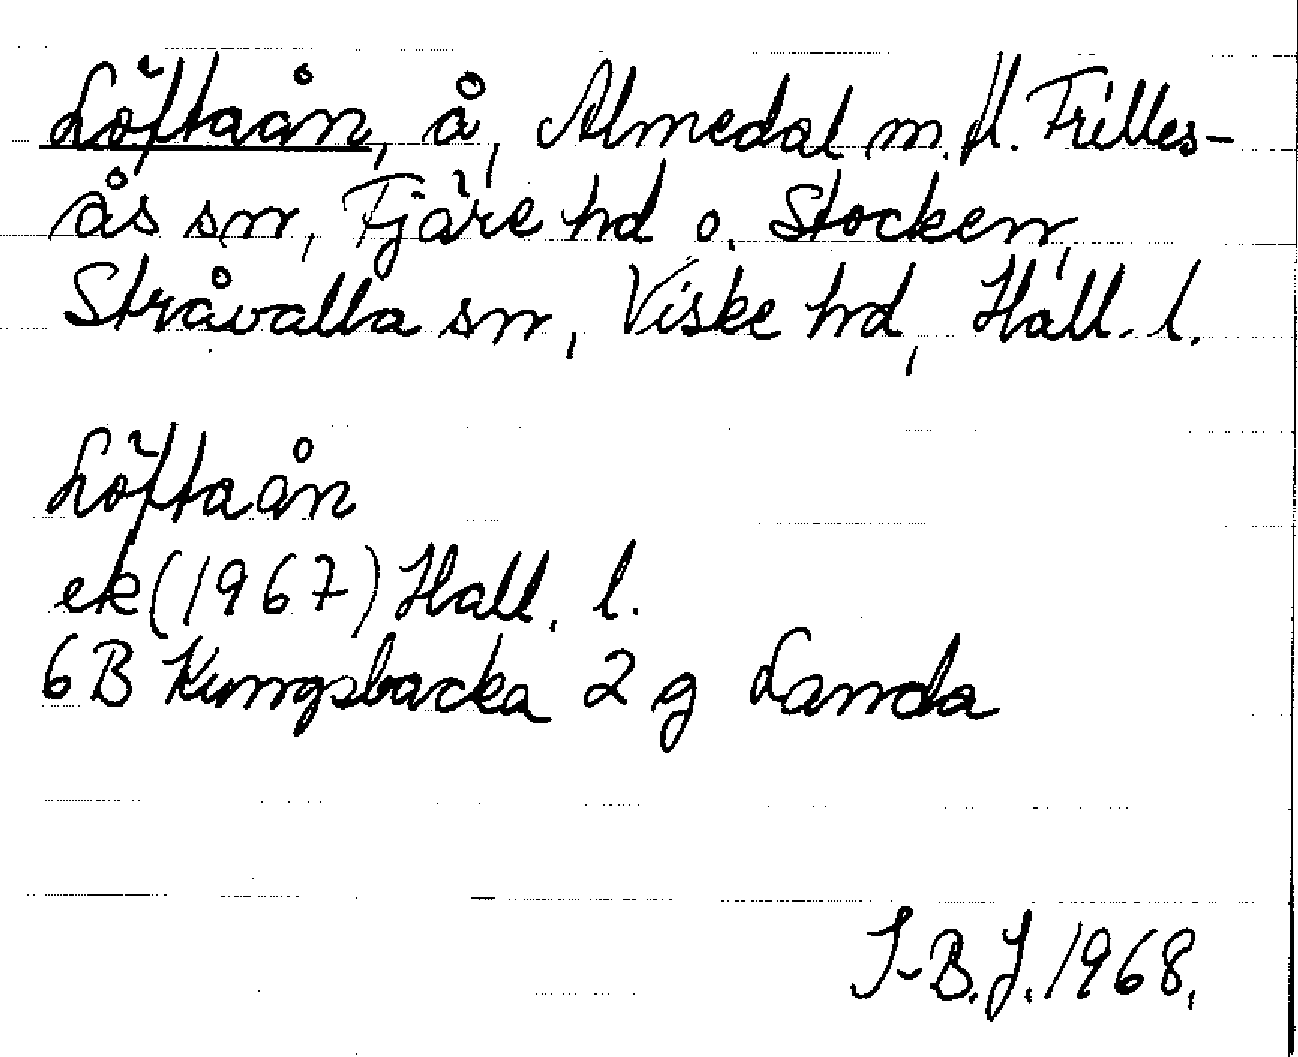 Löftaån, å, Almedal m. fl. Frilles-
ås sn, Fjäre hd o. Stocken,
Stråvalla sn, Viske hd, Hall. l.
Löftaån
ek (1967) Hall. l.
6B Kungsbacka 2 g Landa
I-B.J. 1968.